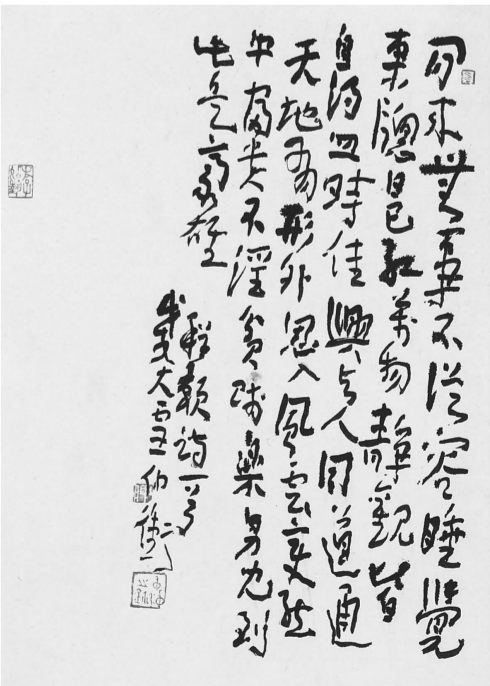 閒来無事不從容睡覺
東牕日已紅萬物静觀皆
自得四時佳興与人同道通
天地有形外思入風雲變態
中富貴不淫貧賤樂男兒到
此是豪雄
程顥詩一首
大雪